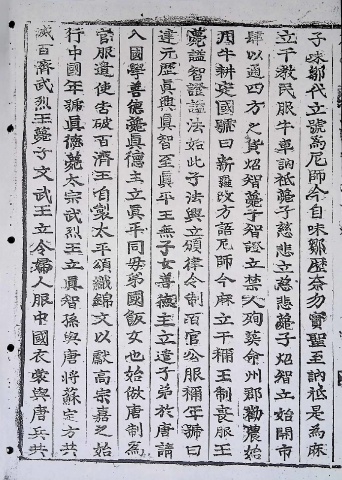 子味鄒代立號爲尼師今自味鄒歷奈勿實聖王訥祗是爲麻
立干敎民服牛車訥祗薨子慈悲立慈悲薨子炤智立始開市
肆以通四方之貨炤智薨子智證立禁人殉葬命州郡勸農始
用牛耕定國號曰新羅改方語尼師今麻立干稱王制喪服王
薨諡智證諡法始此子法興立頒律令制百官公服稱年號曰
建元歷眞興眞智至眞平王無子女善德主立遣子弟於唐請
入國學善德薨眞德主立眞平同母弟國飯女也始倣唐制爲
官服遣使告破百濟王自製太平頌織錦文以獻高宗嘉之始
行中國年號眞德薨太宗武烈王立眞智孫與唐將蘇定方共
滅百濟武烈王薨子文武王立令婦人服中國衣裳與唐兵共